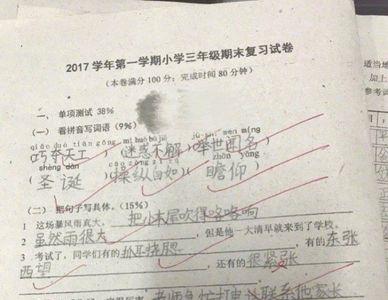 2017 学年第一学期小学三年级期末复习试卷
(本卷满分 100 分；完成时间 80 分钟)
一、 单项测试 38%
(一) 看拼音写词语 (9%)
qiǎo duó tiān gōng mí huò bù jiě jǔ shì wén míng
巧夺天工 ) 迷惑不解 )( 举世闻名 )
shèng dàn cāo zòng zì rú zhān yǎng
圣诞 )( 操纵自如 )( 瞻仰 )
(二) 把句子写具体。(15%)
1 这场暴风雨真大， 把小木屋吹得咯咯响
2 虽然雨很大 ，但是他一大清早就来到了学校。
3 考试了，同学们有的抓耳挠腮 有的东张
西望 ，还有的很紧张
适当地
加上
参考词